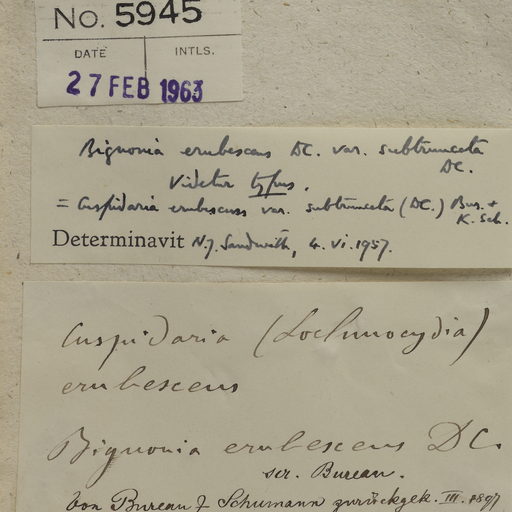 No. 5945
DATE INTLS.
27 FEB 1963
Bignonia erubescens DC. var. subtruncata
DC.
Videtur typus.
= Cuspidaria erubescens var. subtruncata (DC.) Bur. +
K. Sch.
Determinavit N.Y. Sandwith, 4.vi.1957.
Cuspidaria (Lochmocydia)
erubescens
Bignonia erubescens DC.
scr. Bureau.
Von Bureau & Schumann zurückgek. III. 1897